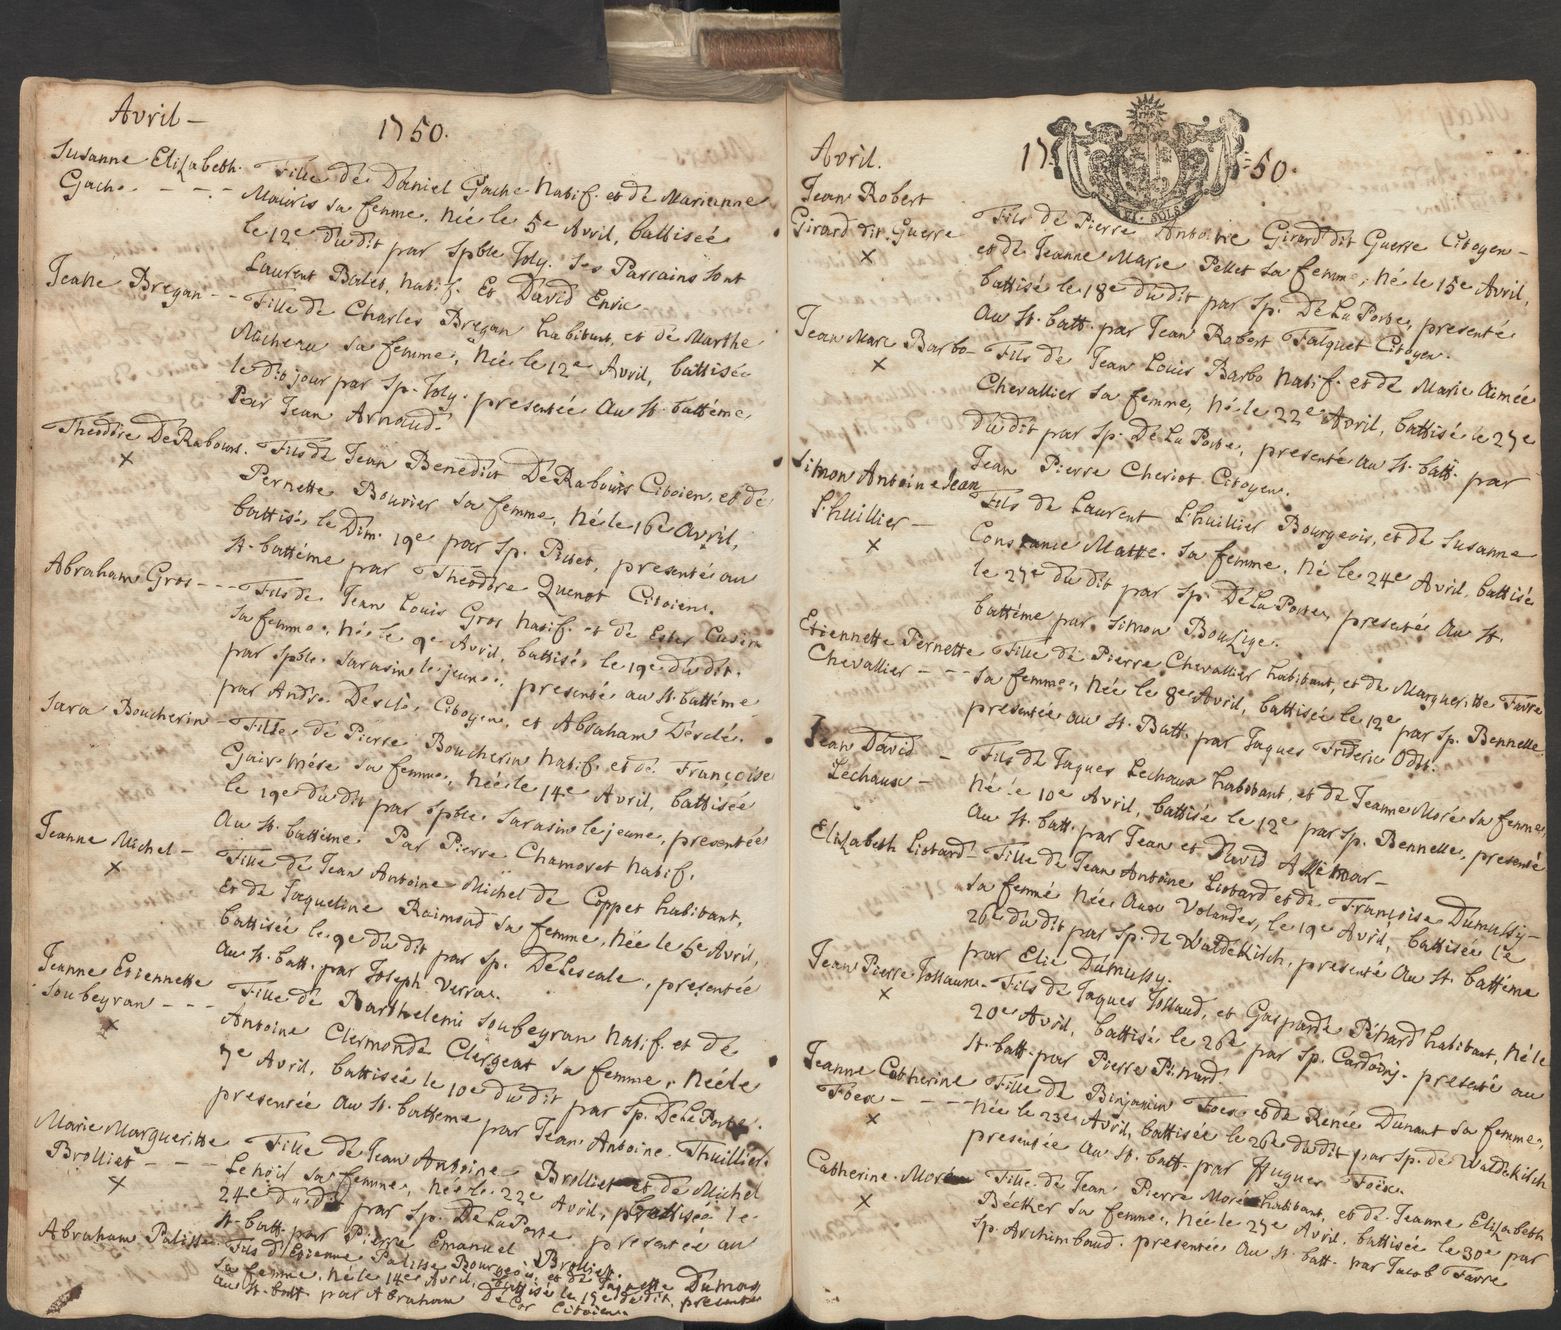 Avril -
1750.
Susanne Elizabeth
Gache - - -
Fille de Daniel Gache Natif. et de Marianne
Mauris sa femme, Née le 5e Avril, battisée
le 12e dudit par Spble Joly. Ses Parrains sont
Laurent Bales, Natif. Et David Enric
Jeane Bregan - -
Fille de Charles Bregan habitant, et de Marthe
sa femme, Née le 12e Avril, battisée
le dit jour par Sp. Joly. presentée Au St. battéme,
Par Jean Arnaud.
Théodore DéRabours.
x
Fils de Jean Benedict DéRabours Citoien, et de
Pernette Bouvier sa femme, Né le 16e Avril,
battisé le Dim. 19e par Sp. Pictet, presenté au
St. battéme par Théodore Quenot Citoien.
Abraham Gros - - -
Fils de Jean Louis Gros Natif. et de Ester Cusin
sa femme, Né le 9e Avril, battisé le 19e dudit.
par Spble. Sarasin le jeune, presenté au St. battéme
par André Desclé, Citoyen, et Abraham Desclé.
Sara Boucherin -
Fille de Pierre Boucherin Natif. et de Françoise
sa femme, Née le 14e Avril, battisée
le 19e dudit par Spble Sarasin le jeune, presentée
Au St. battéme Par Pierre Chamoret Natif.
Jeanne Michel -
x
Fille de Jean Antoine Michel de Coppet habitant,
Et de Jaqueline Raimond sa femme, Née le 6e Avril,
battisée le 9e dudit par Sp. DeLescale, presentée
Au St. batt. par Joseph Verra.
Jeanne Etiennette
Soubeyran - - -
x
Fille de Barthelemi Soubeyran Natif. et de
Antoine Clermonde Clergeat sa femme, Née le
7e Avril, battisée le 10e dudit par Sp. DeLaPorte.
presentée Au St. batteme par Jean Antoine Thuillier.
Marie Margueritte
Brolliet - - -
x
Fille de Jean Antoine Brolliet et de Michel
Lenoir sa femme, Née le 22e Avril, battisée le
24e dudit par Sp. DeLaPorte presentée au
St. batt. par Pierre Emanuel Brolliet.
Abraham Palisse
Fils d'Etienne Palisse Bourgeois, et de Jaquette Dumas
sa femme. Né le 14e Avril, battisé le 19e dudit, presenté
Au St. batt. par Abraham DeCor Citoien.
Avril.
1750.
VI. SOLS
Jean Robert
Girard dit Guerre
x
Fils de Pierre Antoine Girard dit Guerre Citoyen -
et de Jeanne Marie Pellet sa femme, Né le 15e Avril,
battisé le 18e dudit par Sp. DeLaPorte, presenté
Au St. batt. par Jean Robert Falquet Citoyen.
Jean Marc Barbo -
x
Fils de Jean Louis Barbo Natif. et de Marie Aimée
Chevallier sa femme, Né le 22e Avril, battisé le 27e
dudit par Sp. DeLaPorte, presenté Au St. batt. par
Jean Pierre Cheriot Citoyen.
Simon Antoine Jean
L'huillier -
x
Fils de Laurent L'huillier Bourgeois, et de Susanne
Constance Matte sa femme, Né le 24e Avril, battisé
le 27e dudit par Sp. DeLaPorte, presenté Au St.
battéme par Simon Bouzige.
Etiennette Pernette
Chevallier - - -
Fille de Pierre Chevallier habitant, et de Margueritte Favre
sa femme, Née le 8e Avril, battisée le 12e par Sp. Bennelle
presentée au St. Batt. par Jaques Frideric Odet.
Jean David
Lechaux -
Fils de Jaques Lechaux habitant, et de Jeanne Moré sa femme,
Né le 10e Avril, battisé le 12e par Sp. Bennelle, presenté
Au St. batt. par Jean et David Allemar -
Elizabeth Liotard -
Fille de Jean Antoine Liotard et de Françoise Dumussy -
sa femme Née Aux Volandes, le 19e Avril, battisée le
26e dudit par Sp. de Waldekisch, presenté Au St. battéme
par Elie Dumussy.
Jean Pierre
x
Fils de Jaques et Gasparde Pénard habitant, Né le
20e Avril, battisé le 26e par Sp. Cardoiny. presenté au
St. batt. par Pierre Pénard.
Jeanne Catherine
Foëx - - - -
x
Fille de Benjamin Foëx et de Renée Dunant sa femme,
Née le 23e Avril, battisée le 26e dudit par Sp. de Waldekisch
presentée Au St. batt. par Hugues Foëx.
Catherine Moré
x
Fille de Jean Pierre Moré habitant, et de Jeanne Elizabeth
Béctker sa femme, Née le 27e Avril, battisée le 30e par
Sp. Archimbaud. presentée Au St. batt. par Jacob Favre